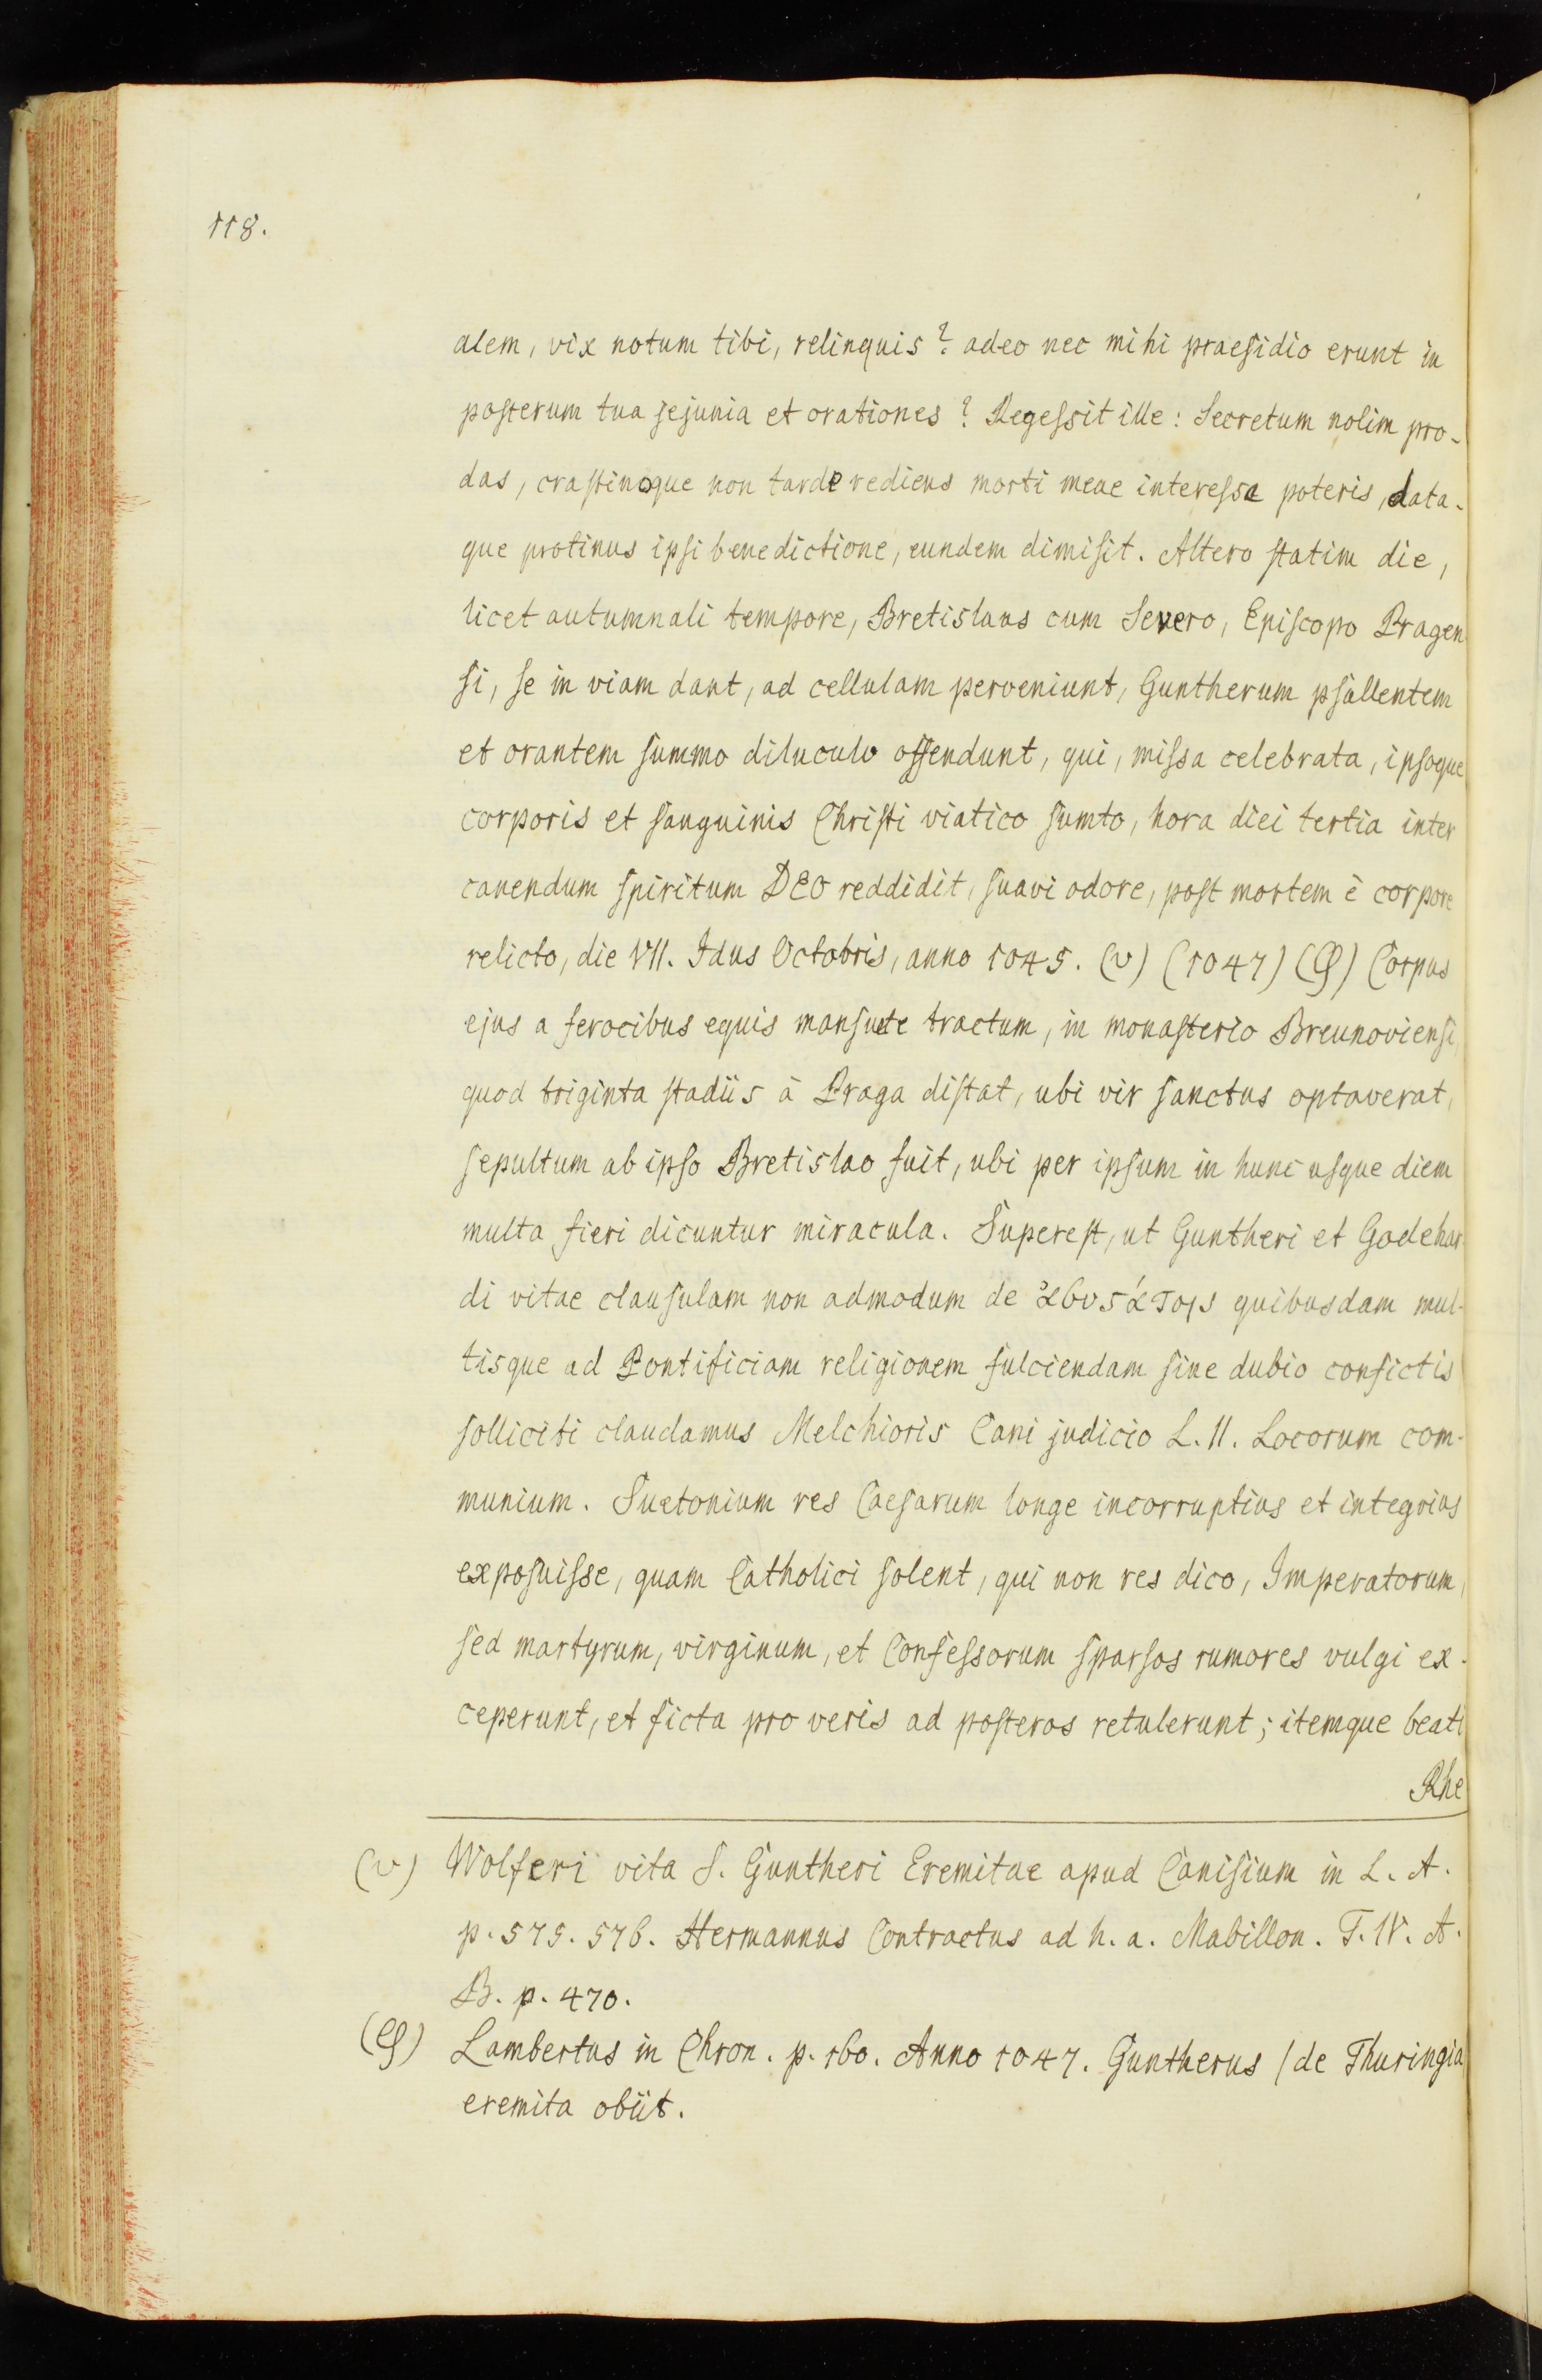 118.
alem, vix notum tibi, relinquis? adeo nec mihi praeſidio erunt in
poſterum tua jejunia et orationes? Regeſsit ille: Secretum nolim pro-
das, craſtinoque non tarde rediens morti meae intereſse poteris, data-
que protinus ipſi benedictione, eundem dimiſit. Altero ſtatim die,
licet autumnali tempore, Bretislaus cum Severo, Epiſcopo Pragen
ſi, ſe in viam dant, ad cellulam perveniunt, Guntherum pſallentem
et orantem ſummo diluculo offendunt, qui, miſsa celebrata, ipſoque
corporis et ſanguinis Chriſti viatico ſumto, hora diei tertia inter
canendum ſpiritum DEO reddidit, ſuavi odore, poſt mortem è corpore
relicto, die VII. Idus Octobris, anno 1045. (v) (1047) (φ) Corpus
ejus a ferocibus equis manſuete tractum, in monaſterio Breunovienſi,
quod triginta ſtadiis à Praga diſtat, ubi vir ſanctus optaverat,
ſepultum ab ipſo Bretislao fuit, ubi per ipſum in hunc uſque diem
multa fieri dicuntur miracula. Supereſt, ut Guntheri et Godehar
di vitae clauſulam non admodum de quibusdam mul-
tisque ad Pontificiam religionem fulciendam ſine dubio confictis
ſolliciti claudamus Melchioris Cani judicio L. II. Locorum com-
munium. Suetonium res Caeſarum longe incorruptius et integrius
expoſuiſse, quam Catholici ſolent, qui non res dico, Imperatorum,
ſed martyrum, virginum, et Confeſsorum ſparſos rumores vulgi ex-
ceperunt, et ficta pro veris ad poſteros retulerunt; itemque beati
Rhe
(v) Wolferi vita S. Guntheri Eremitae apud Caniſium in L. A.
p. 575. 576. Hermannus Contractus ad h. a. Mabillon. T. IV. A.
B. p. 470.
(φ) Lambertus in Chron. p. 160. Anno 1047. Guntherus /de Thuringia
eremita obiit.